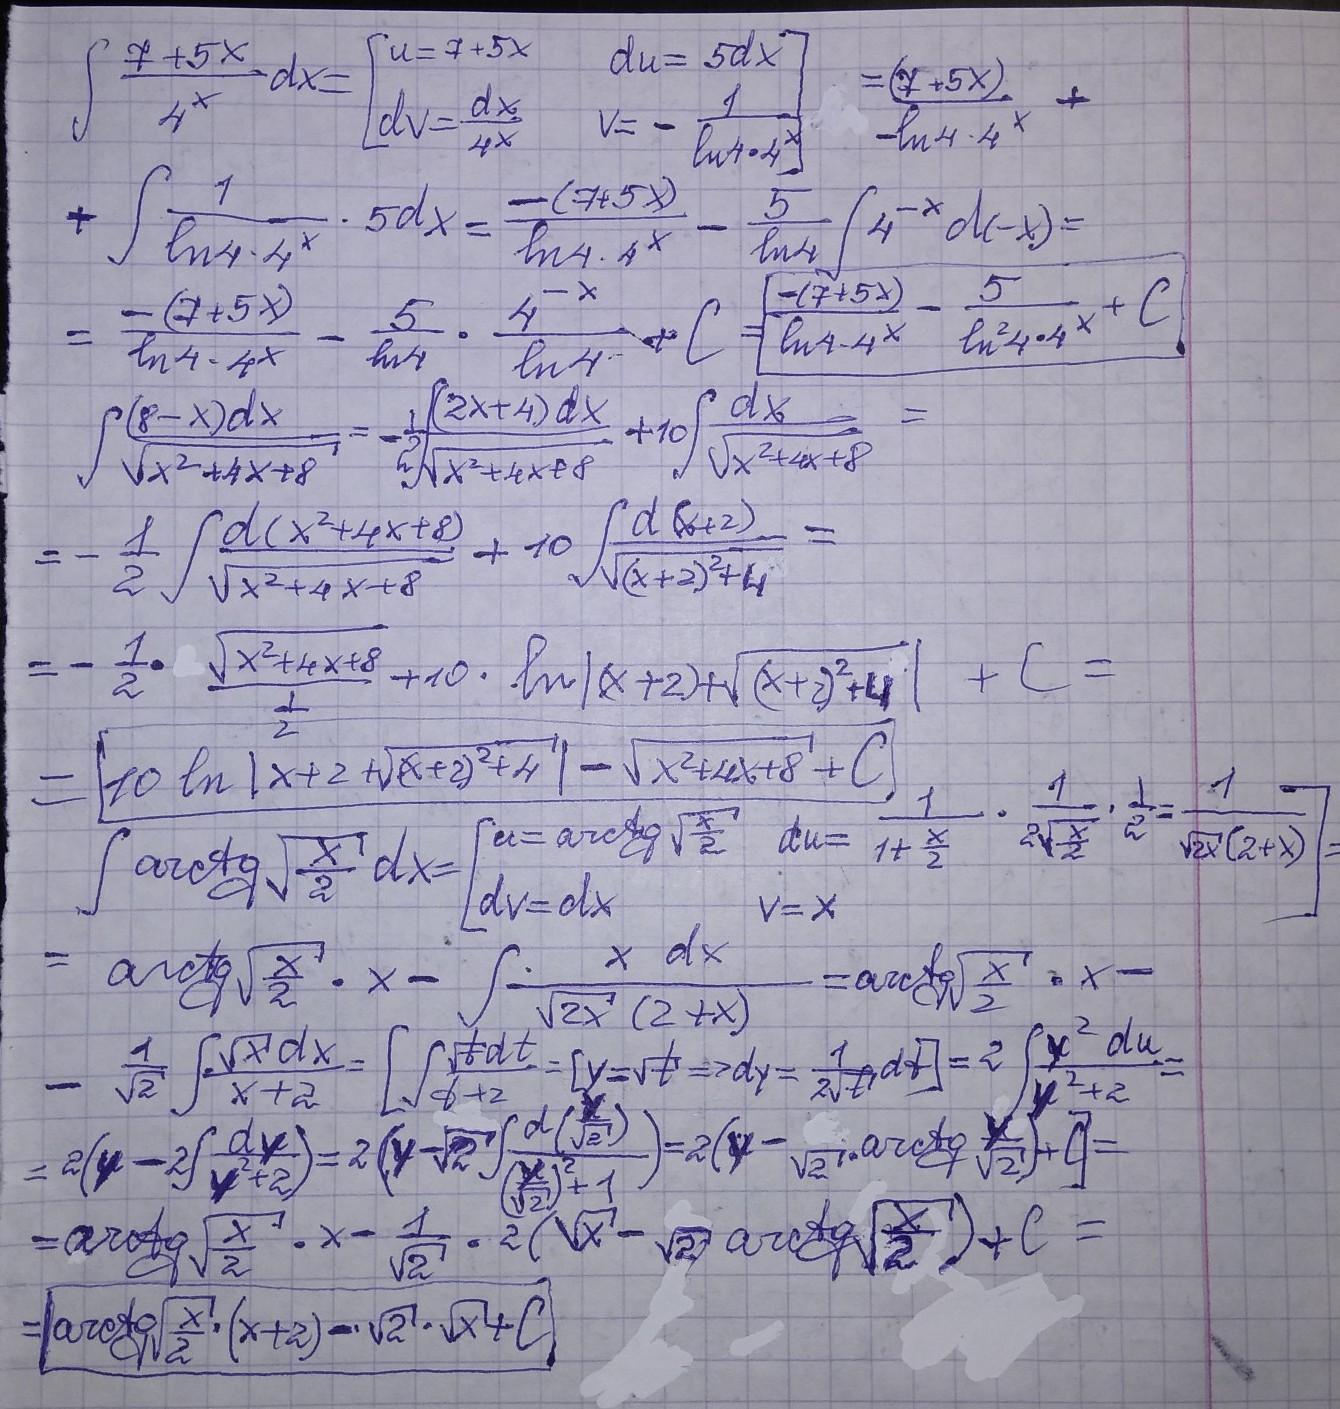 ∫ (7+5x)/4^x dx = [u=7+5x du=5dx dv=dx/4^x v=-1/(ln4·4^x)] = (7+5x)/(-ln4·4^x) +
+ ∫ 1/(ln4·4^x) · 5dx = -(7+5x)/(ln4·4^x) - 5/ln4 ∫ 4^(-x) d(-x) =
= -(7+5x)/(ln4·4^x) - 5/ln4 · 4^(-x)/ln4 + C = -(7+5x)/(ln4·4^x) - 5/(ln²4·4^x) + C
∫ (8-x)dx/√(x²+4x+8) = -1/2 ∫ (2x+4)dx/√(x²+4x+8) + 10 ∫ dx/√(x²+4x+8) =
= -1/2 ∫ d(x²+4x+8)/√(x²+4x+8) + 10 ∫ d(x+2)/√((x+2)²+4) =
= -1/2 · √(x²+4x+8)/(1/2) + 10 · ln|(x+2)+√((x+2)²+4)| + C =
= 10 ln|x+2+√((x+2)²+4)| - √(x²+4x+8) + C
∫ arctg√(x/2) dx = [u=arctg√(x/2) du=1/(1+x/2) · 1/(2√(x/2)) · 1/2 = 1/(√(2x)(2+x)) dv=dx v=x] =
= arctg√(x/2) · x - ∫ x dx/(√(2x)(2+x)) = arctg√(x/2) · x -
- 1/√2 ∫ √x dx/(x+2) = [∫ √t dt/(t+2) = [y=√t => dy=1/(2√t) dt] = 2 ∫ y² du/(y²+2) =
= 2(y - 2∫ dy/(y²+2)) = 2(y - √2 ∫ d(y/√2)/((y/√2)²+1)) = 2(y - √2 · arctg y/√2) + C] =
= arctg√(x/2) · x - 1/√2 · 2(√x - √2 arctg√(x/2)) + C =
= arctg√(x/2) · (x+2) - √2 · √x + C